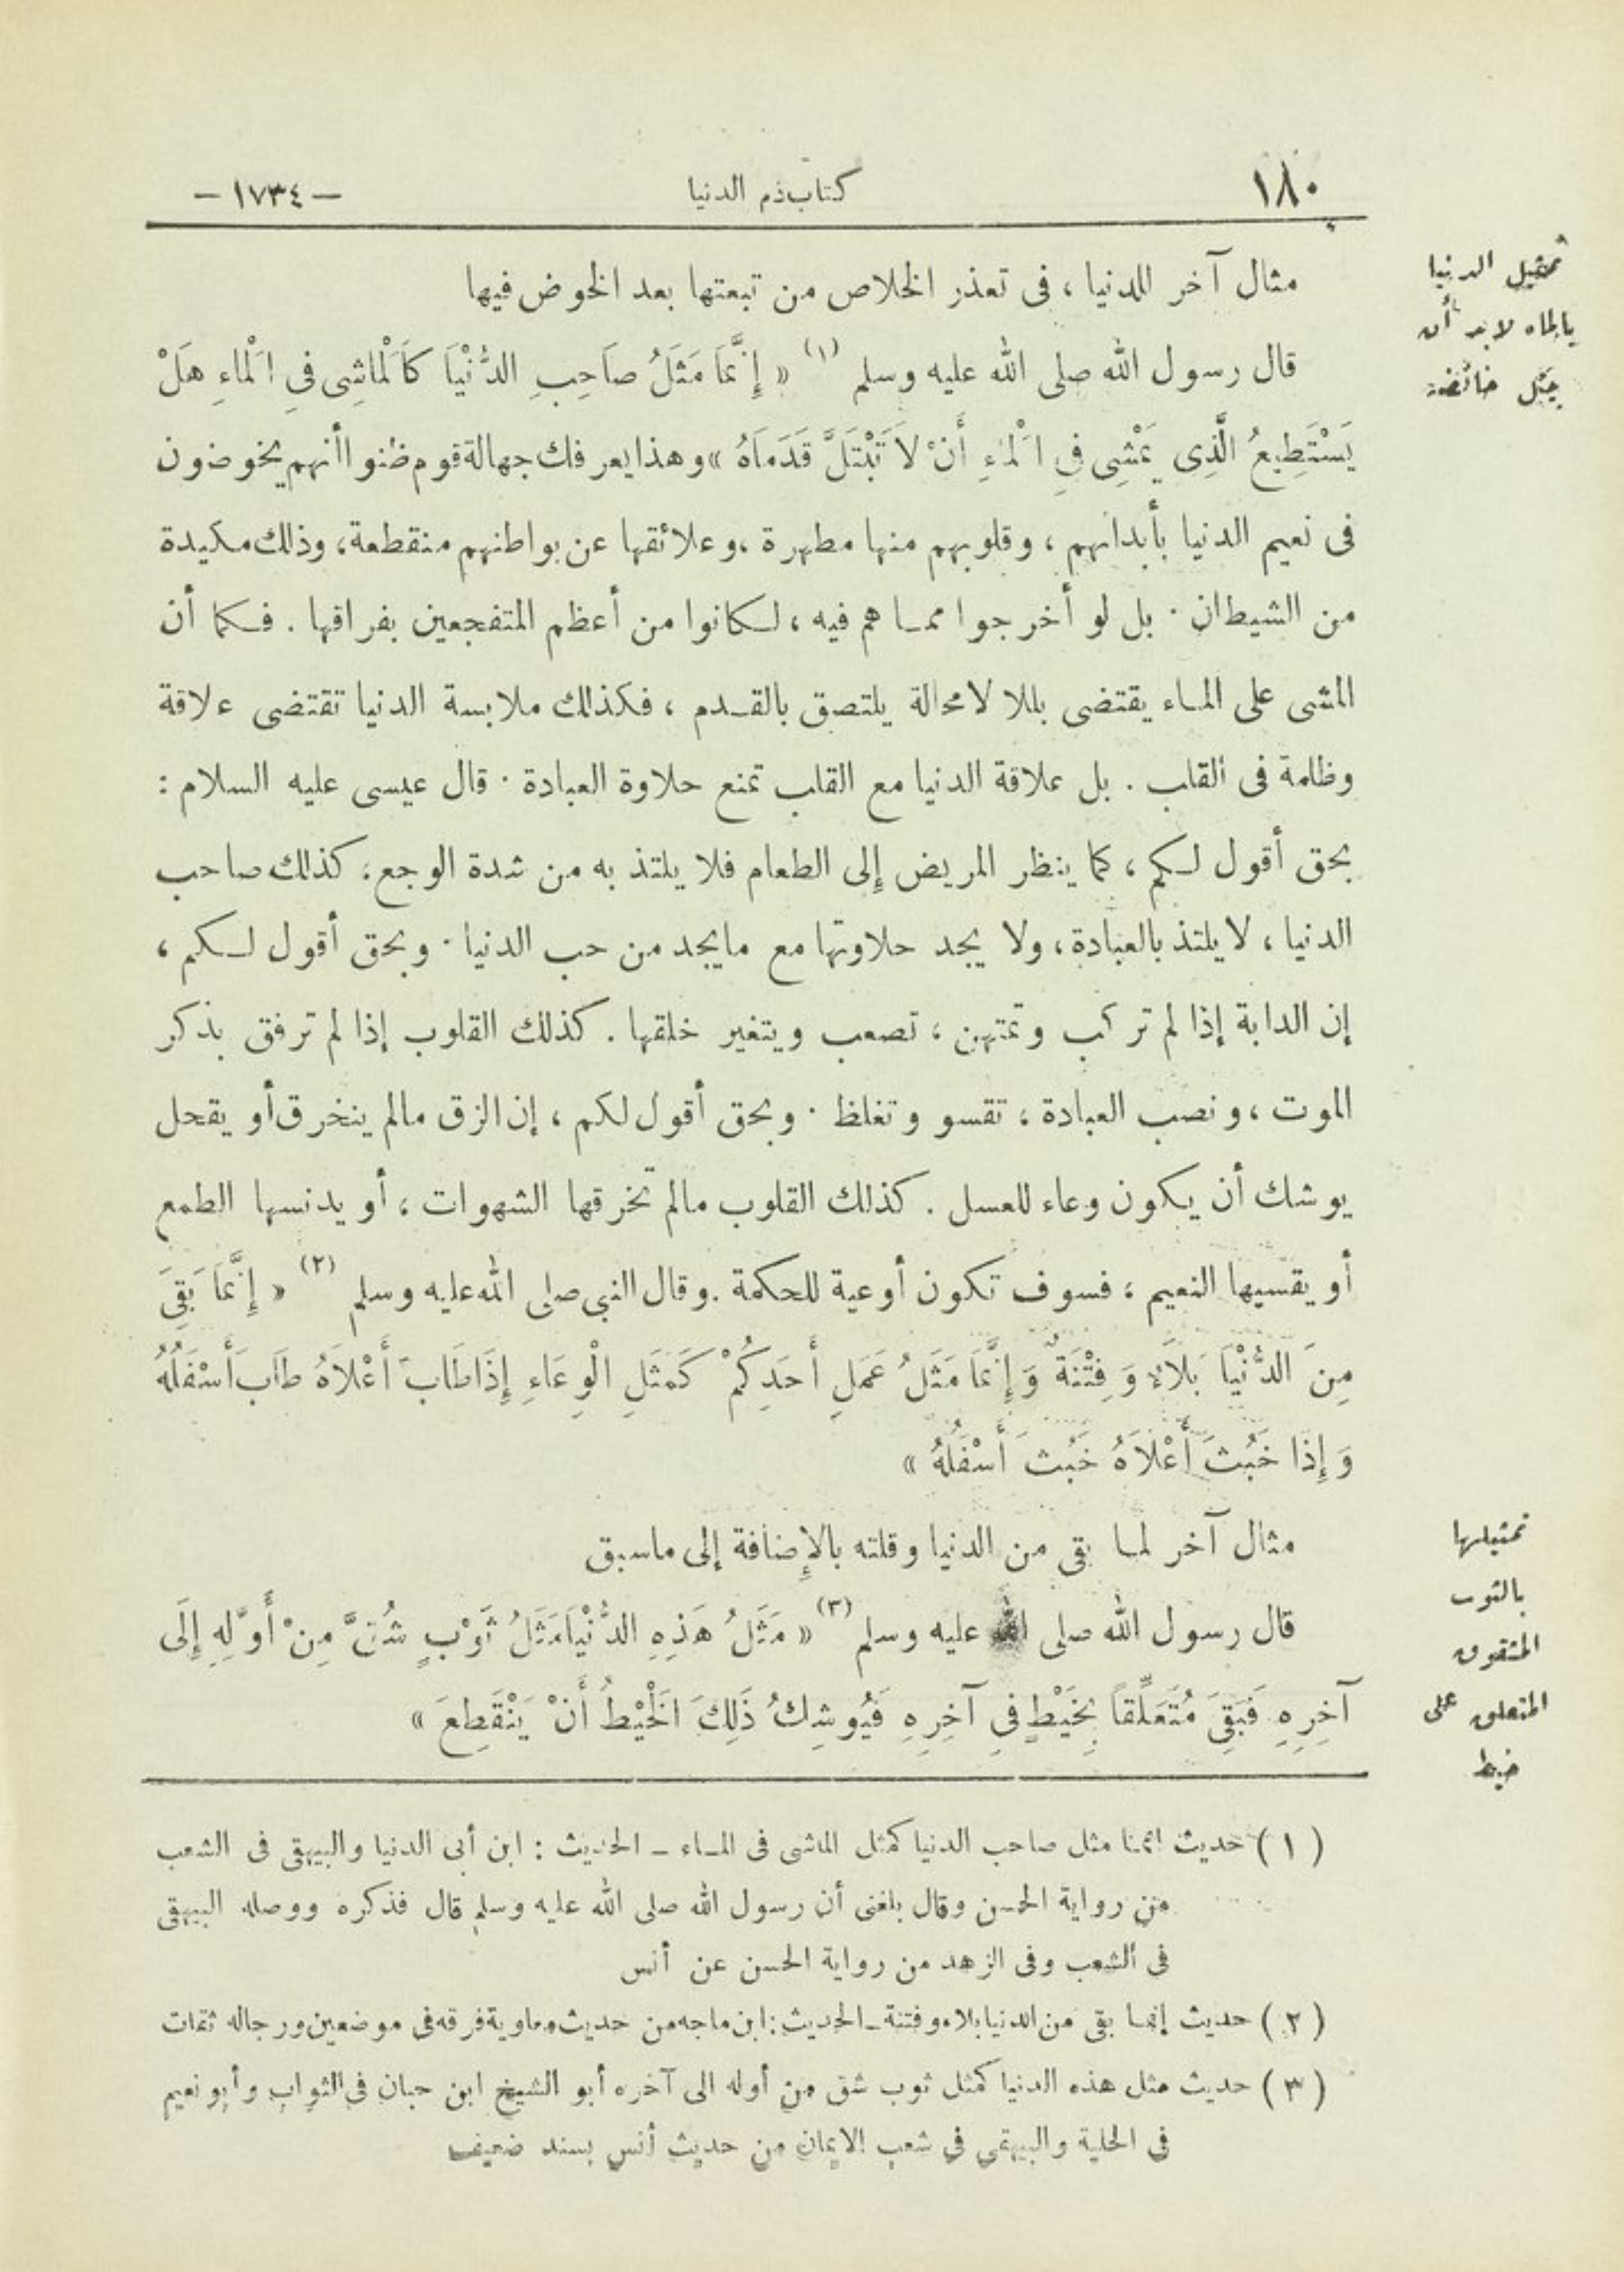 ١٨٠ كتاب ذم الدنيا — ١٧٣٤ —
تمثيل الدنيا
بالماء لا بد أن
يبتل خائضه
مثال آخر للدنيا ، فى تعذر الخلاص من تبعتها بعد الخوض فيها
قال رسول الله صلى الله عليه وسلم (١) « إِنَّمَا مَثَلُ صَاحِبِ الدُّنْيَا كَالْمَاشِى فِى الْمَاءِ هَلْ
يَسْتَطِيعُ الَّذِى يَمْشِى فِى الْمَاءِ أَنْ لاَ تَبْتَلَّ قَدَمَاهُ » وهذا يعرفك جهالة قوم ظنوا أنهم يخوضون
فى نعيم الدنيا بأبدانهم ، وقلوبهم منها مطهرة ، وعلائقها عن بواطنهم منقطعة ، وذلك مكيدة
من الشيطان . بل لو أخرجوا ممـا هم فيه ، لـكانوا من أعظم المتفجعين بفراقها . فـكما أن
المشى على المـاء يقتضى بللا لا محالة يلتصق بالقـدم ، فكذلك ملابسة الدنيا تقتضى علاقة
وظلمة فى القلب . بل علاقة الدنيا مع القلب تمنع حلاوة العبادة . قال عيسى عليه السلام :
بحق أقول لـكم ، كما ينظر المريض إلى الطعام فلا يلتذ به من شدة الوجع ، كذلك صاحب
الدنيا ، لا يلتذ بالعبادة ، ولا يجد حلاوتها مع ما يجد من حب الدنيا . وبحق أقول لـكم ،
إن الدابة إذا لم تركب وتمتهن ، تصعب ويتغير خلقها . كذلك القلوب إذا لم ترفق بذكر
الموت ، ونصب العبادة ، تقسو وتغلظ . وبحق أقول لكم ، إن الزق مالم ينخرق أو يقحل
يوشك أن يـكون وعاء للعسل . كذلك القلوب مالم تخرقها الشهوات ، أو يدنسها الطمع
أو يقسيها النعيم ، فسوف تكون أوعية للحكمة . وقال النبى صلى الله عليه وسلم (٢) « إِنَّمَا بَقِىَ
مِنَ الدُّنْيَا بَلاَءٌ وَفِتْنَةٌ وَإِنَّمَا مَثَلُ عَمَلِ أَحَدِكُمْ كَمَثَلِ الْوِعَاءِ إِذَا طَابَ أَعْلاَهُ طَابَ أَسْفَلُهُ
وَإِذَا خَبُثَ أَعْلاَهُ خَبُثَ أَسْفَلُهُ »
تمثيلها
بالثوب
المشقوق
المتعلق على
خيط
مثال آخر لمـا بقى من الدنيا وقلته بالإضافة إلى ما سبق
قال رسول الله صلى الله عليه وسلم (٣) « مَثَلُ هَذِهِ الدُّنْيَا مَثَلُ ثَوْبٍ شُقَّ مِنْ أَوَّلِهِ إِلَى
آخِرِهِ فَبَقِىَ مُتَعَلِّقاً بِخَيْطٍ فِى آخِرِهِ فَيُوشِكُ ذَلِكَ الْخَيْطُ أَنْ يَنْقَطِعَ »
( ١ ) حديث انمـا مثل صاحب الدنيا كمثل الماشى فى المـاء ـ الحديث : ابن أبى الدنيا والبيهقى فى الشعب
من رواية الحسن وقال بلغنى أن رسول الله صلى الله عليه وسلم قال فذكره ووصله البيهقى
فى الشعب وفى الزهد من رواية الحسن عن أنس
( ٢ ) حديث إنمـا بقى من الدنيا بلاء وفتنة ـ الحديث : ابن ماجه من حديث معاوية فرقه فى موضعين ورجاله ثقات
( ٣ ) حديث مثل هذه الدنيا كمثل ثوب شق من أوله الى آخره أبو الشيخ ابن حبان فى الثواب وأبو نعيم
فى الحلية والبيهقى فى شعب الايمان من حديث أنس بسند ضعيف